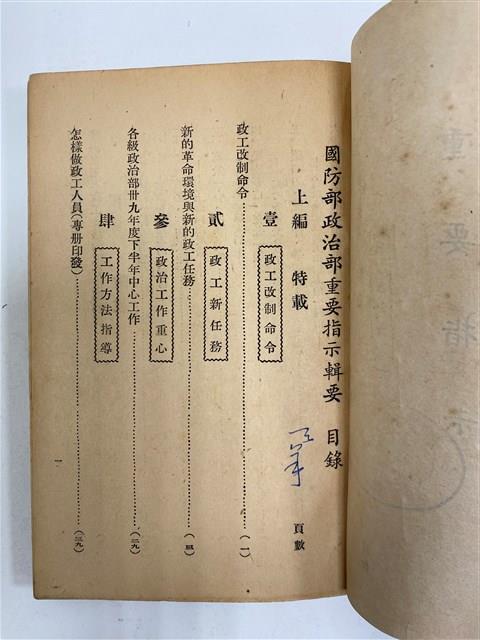 國防部政治部重要指示輯要 目錄
上編 特載 頁數
壹 政工改制命令
政工改制命令……(一)
貳 政工新任務
新的革命環境與新的政工任務……(三)
參 政治工作重心
各級政治部卅九年度下半年中心工作……(二九)
肆 工作方法指導
怎樣做政工人員(專册印發)……(三九)
一
重要指示